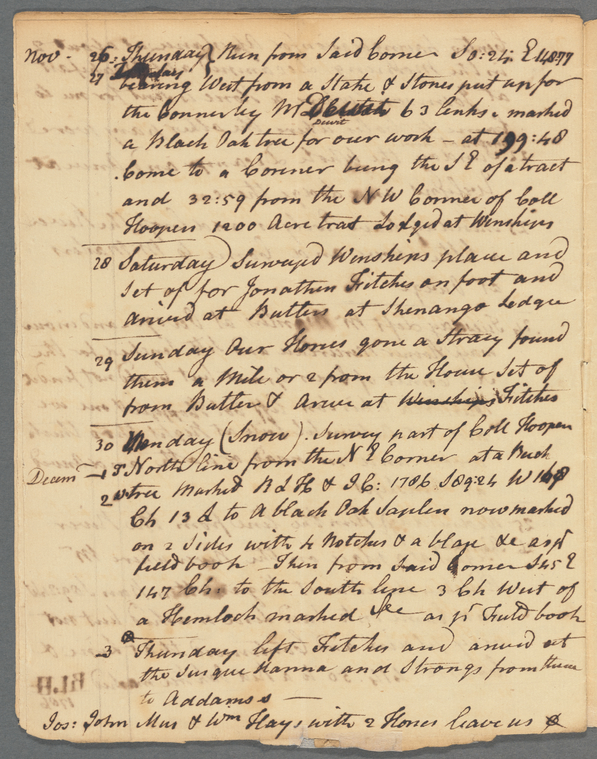 Nov - 26, Thursday } Run from Said Corner So: 24: E 148.77
27
bearing West from a Stake & Stones put up for
the Connerby Mr Dewitt 63 links & marked
Dewit
a Black Oak tree for our work - at 199:48
Come to a Conner being the S E of a tract
and 32:59 from the N W Conner of Coll
Hoopers 1200 Acre tract Lodged at Winships
28 Saturday) Survayed Winships place and
Set of for Jonathen Fitches on foot and
arived at Butlers at Shenango Lodge
29 Sunday Our Horses gone a Stray found
them a Mile or 2 from the House Set of
from Butler & Arive at Winships Fitches
30 Monday (Snow). Survey part of Coll Hoopers
Decemr - 1st North line from the N E Corner at a Buck
2d tree Marked R L H & J C: 1786 S 89:24 W 168
Ch 13 L to A black Oak Saplen now marked
on 2 Sides with 4 Notches & a blaze &c as pr
field book - Then from Said Corner S 45 E
147 Chs to the South line 3 Ch West of
a Hemlock marked See as pr Field book
3 Thursday left Fitches and arived at
the Susquehanna and Strongs from thence
to Addamss
Jos: John Mus & Wm Hays with 2 Horses leave us